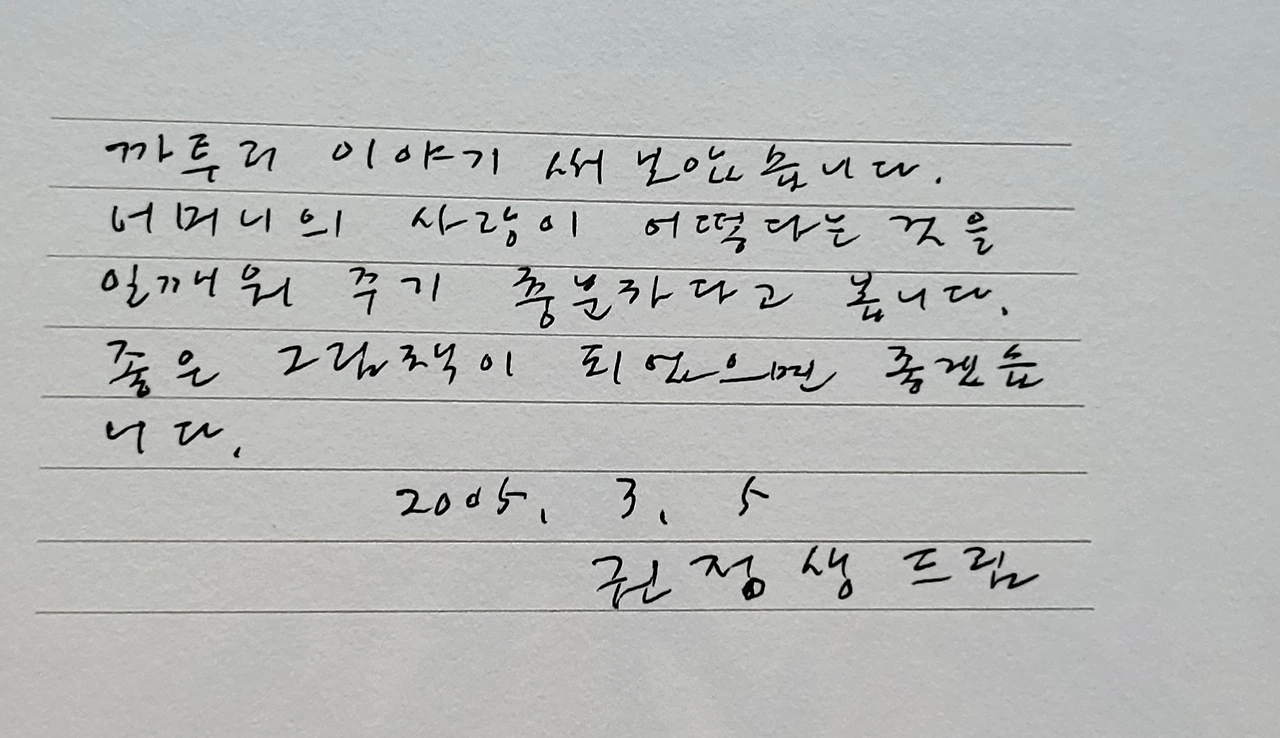 까투리 이야기 써 보았습니다.
어머니의 사랑이 어떻다는 것을
일깨워 주기 충분하다고 봅니다.
좋은 그림책이 되었으면 좋겠습
니다.
2005. 3. 5
권정생 드림